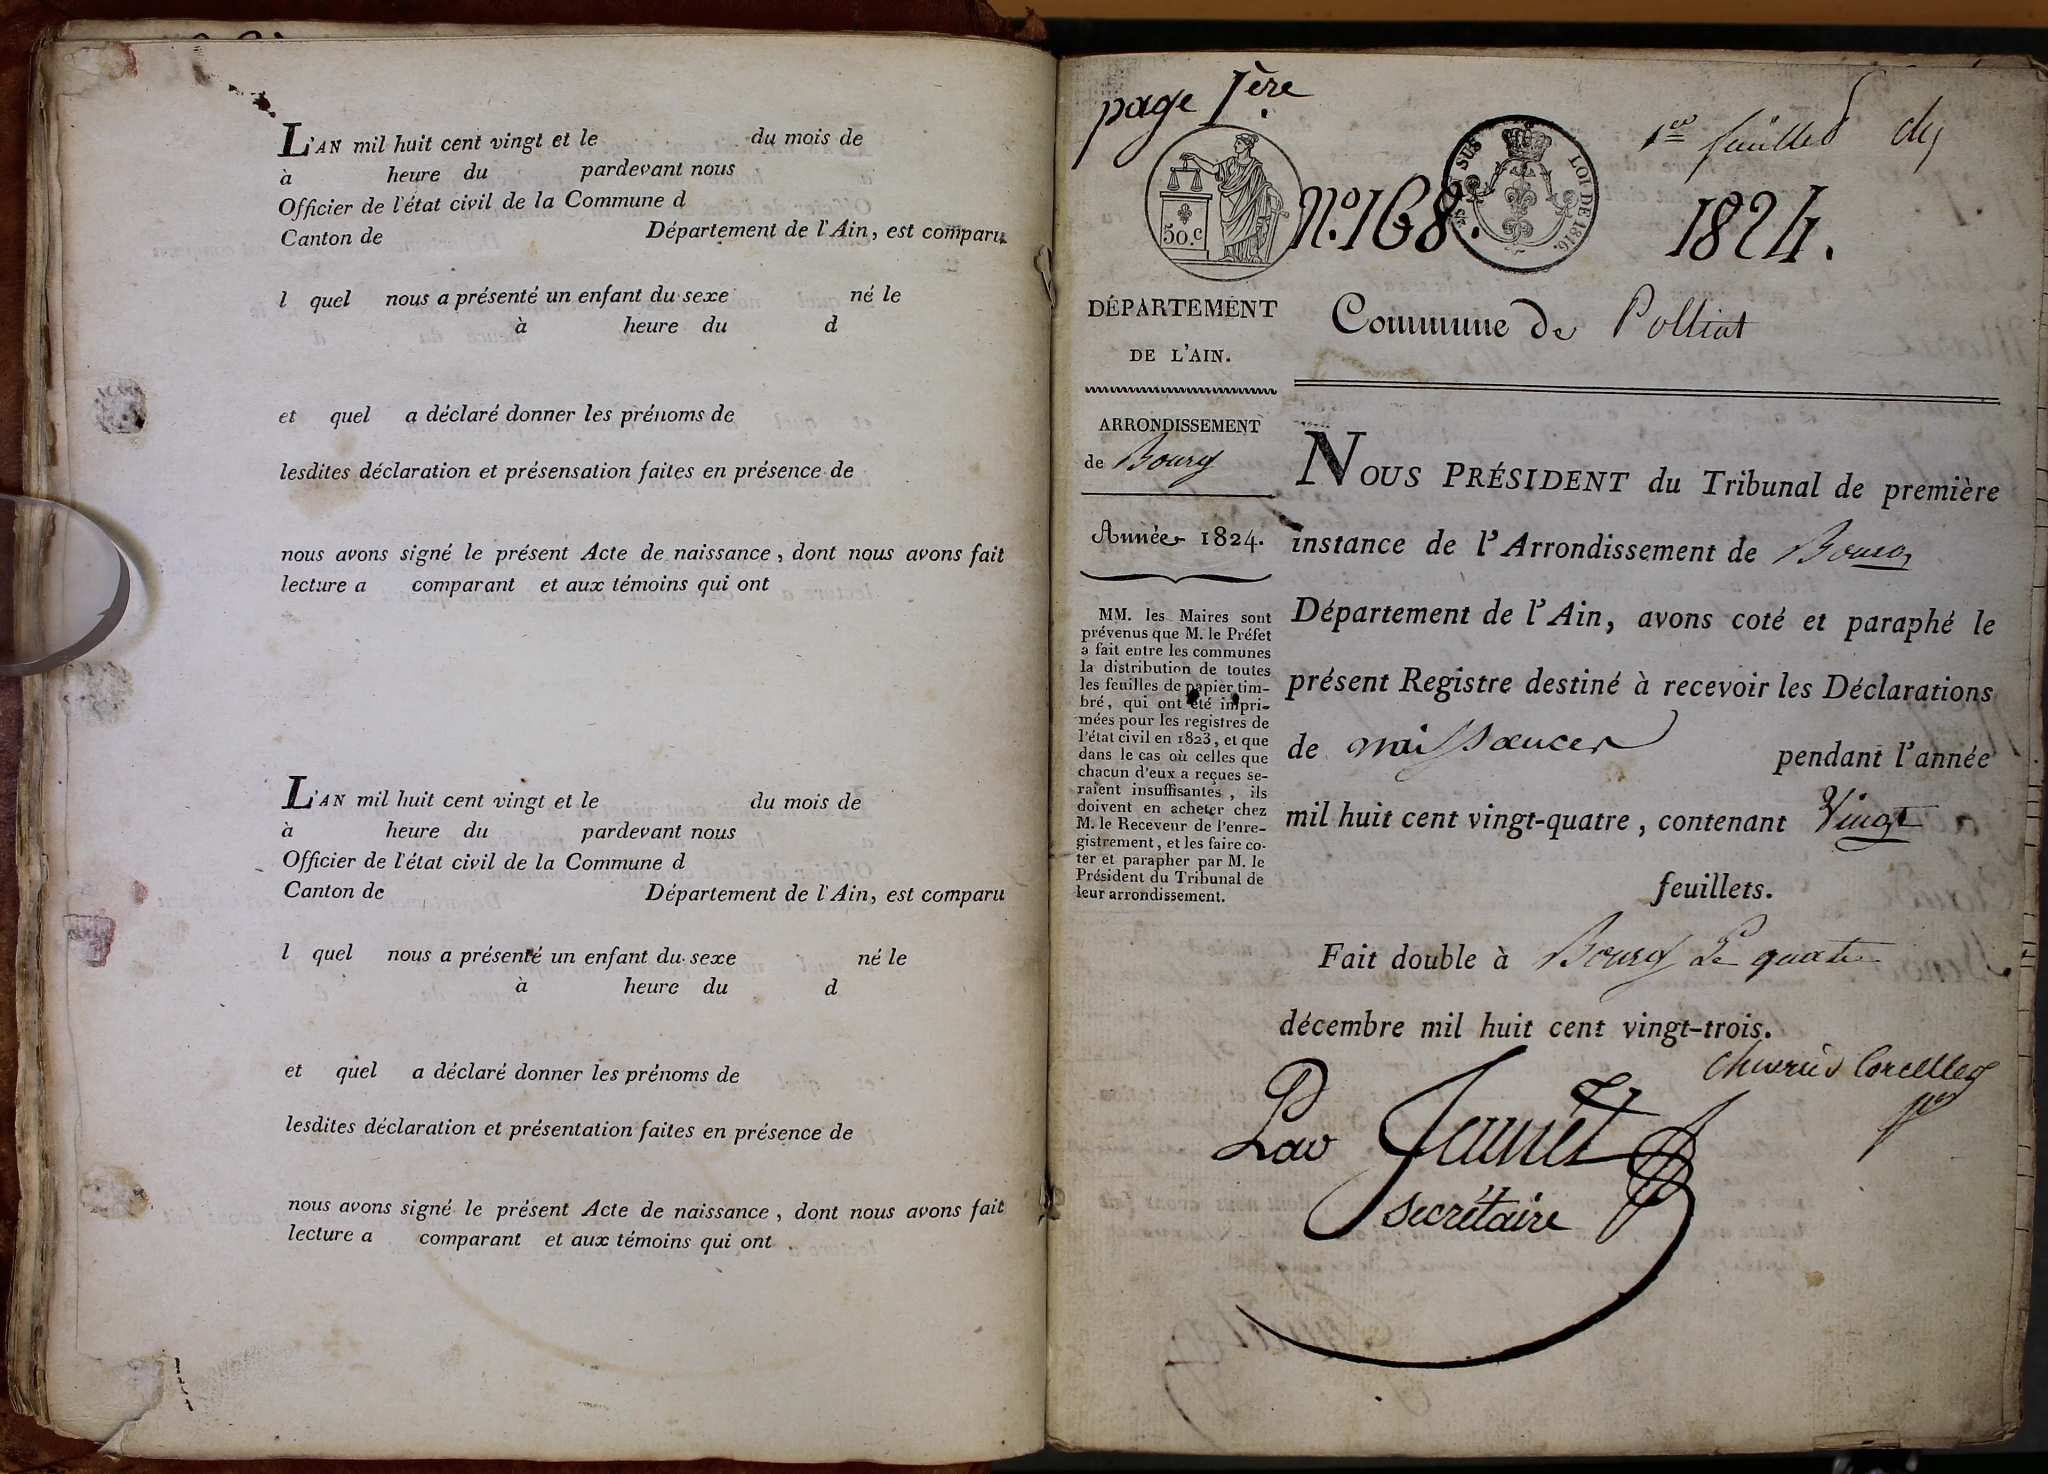 L'AN mil huit cent vingt et le du mois de
à heure du pardevant nous
Officier de l'état civil de la Commune d
Canton de Département de l'Ain, est comparu
l quel nous a présenté un enfant du sexe né le
à heure du d
et quel a déclaré donner les prénoms de
lesdites déclaration et présensation faites en présence de
nous avons signé le présent Acte de naissance, dont nous avons fait
lecture a comparant et aux témoins qui ont
L'AN mil huit cent vingt et le du mois de
à heure du pardevant nous
Officier de l'état civil de la Commune d
Canton de Département de l'Ain, est comparu
l quel nous a présenté un enfant du sexe né le
à heure du d
et quel a déclaré donner les prénoms de
lesdites déclaration et présentation faites en présence de
nous avons signé le présent Acte de naissance, dont nous avons fait
lecture a comparant et aux témoins qui ont
page 1ère
50.c
SUS
LOI DE 1816.
N.o 168.
1824.
DÉPARTEMENT
DE L'AIN.
ARRONDISSEMENT
de Bourg
Année 1824.
MM. les Maires sont
prévenus que M. le Préfet
a fait entre les communes
la distribution de toutes
les feuilles de papier tim-
bré, qui ont été impri-
mées pour les registres de
l'état civil en 1823, et que
dans le cas où celles que
chacun d'eux a reçues se-
raient insuffisantes, ils
doivent en acheter chez
M. le Receveur de l'enre-
gistrement, et les faire co-
ter et parapher par M. le
Président du Tribunal de
leur arrondissement.
Commune de Polliat
NOUS PRÉSIDENT du Tribunal de première
instance de l'Arrondissement de Bourg
Département de l'Ain, avons coté et paraphé le
présent Registre destiné à recevoir les Déclarations
de naissances pendant l'année
mil huit cent vingt-quatre, contenant Vingt
feuillets.
Fait double à Bourg Le quatre
décembre mil huit cent vingt-trois.
secrétaire